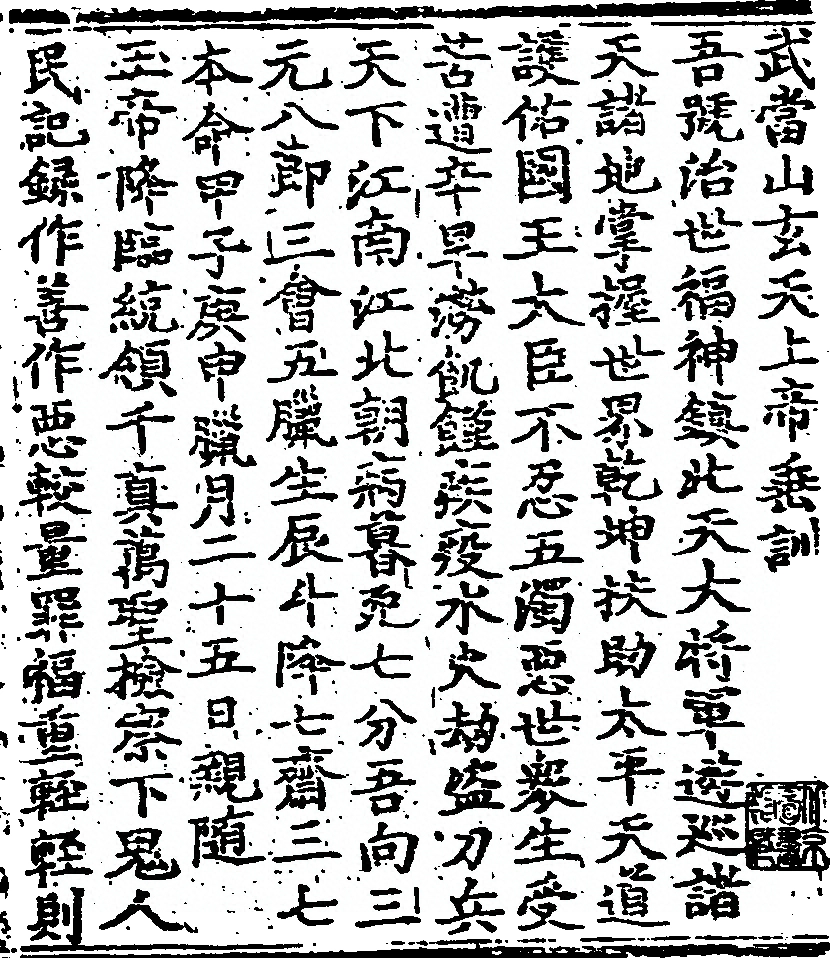 武當山玄天上帝垂訓
吾號治世福神鎮北天大将軍遊巡諸
天諸地掌握世界乾坤扶助太平天道
護佑國王大臣不忍五濁悪世衆生受
苦遭辛旱澇飢饉疾疫水火劫盗刀兵
天下江南江北朝病暮死七分吾向三
元八節三會五臘生辰斗降七齋三七
本命甲子庚申臘月二十五日親隨
玉帝降臨統領千真萬聖檢察下鬼人
民記録作善作悪較量罪福重輕輕則